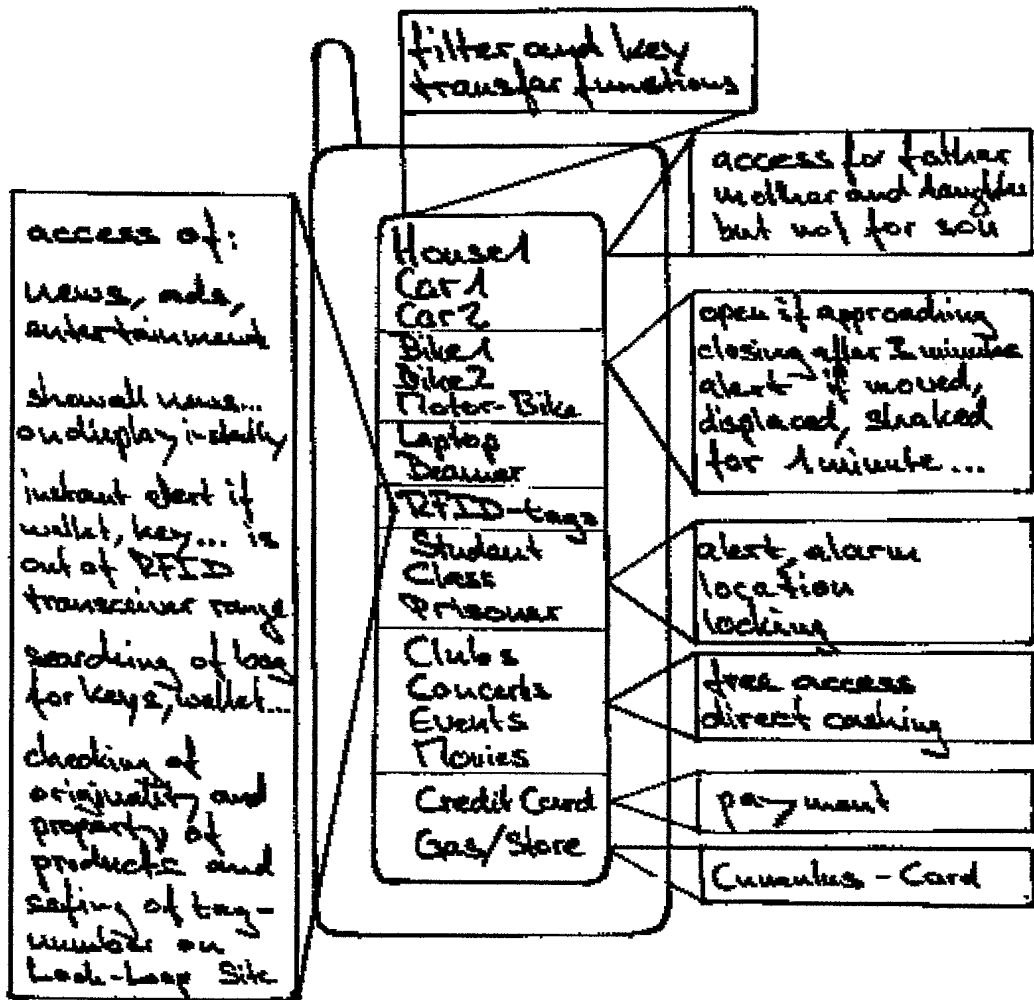 filter and key
transfer functions
access for father
mother and daughter
but not for son
access of:
news, ads,
entertainment
showall news...
on display instantly
instant alert if
wallet, key... is
out of RFID
transceiver range
searching of bag
for keys, wallet...
checking of
originality and
property of
products and
safing of tag-
number on
Look-Loop Site
House1
Car1
Car2
Bike1
Bike2
Motor-Bike
Laptop
Beamer
RFID-tags
Student
Class
Prisoner
Clubs
Concerts
Events
Movies
Credit Card
Gas/Store
open if approaching
closing after minute
alert if moved,
displaced, shaked
for 1 minute...
alert, alarm
location
locking
free access
direct cashing
payment
Cumulus-Card